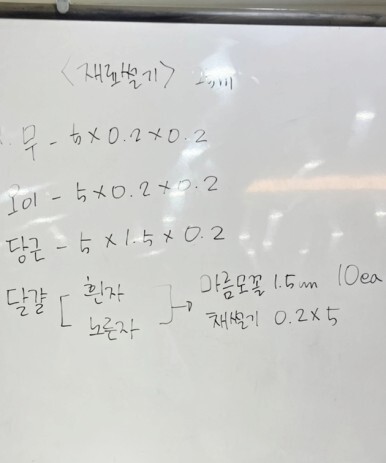 <재료썰기>
무 - 5×0.2×0.2
오이 - 5×0.2×0.2
당근 - 5×1.5×0.2
달걀 [ 흰자 노른자 ] → 마름모꼴 1.5cm 10ea
채썰기 0.2×5